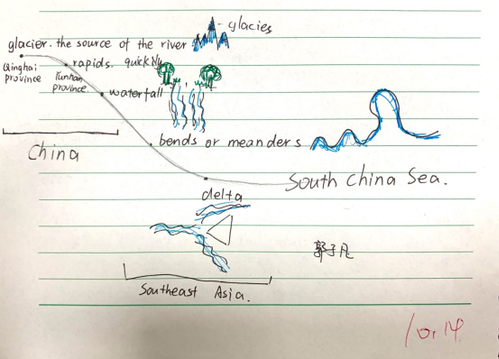 glacies
glacier. the source of the river
Qinghai province
rapids. quickily
Yunnan province
waterfall
bends or meanders
China
South China Sea.
delta
Southeast Asia.
郭子凡
10.14